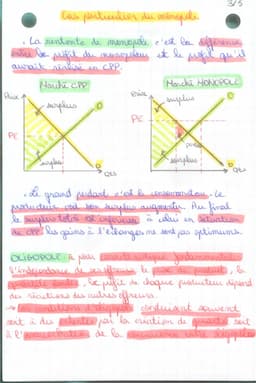 3/5
Cas particuliers du monopole
. La rentente de monopole c'est la différence
entre le profit du monopoleur et le profit qu'il
aurait réalisé en CPP.
Marché CPP
Marché MONOPOLE
Prix
surplus
PE
surplus
O
D
Qtés
Prix
surplus
PE
perte
surplus
O
D
Qtés
. Le grand perdant c'est le consommateur. Le
producteur voit son surplus augmenter. Au final
le surplus total est inférieur à celui en situation
de CPP les gains à l'échange ne sont pas optimums.
OLIGOPOLE : a pour caractéristique fondamentale
l'indépendance de ses offreurs, le prix du produit, la
quantité vendue, le profit de chaque producteur dépend
des réactions des autres offreurs.
→ les conditions d'oligopole conduisent souvent
soit à des ententes par la création de quotas soit
à l'augmentation de la